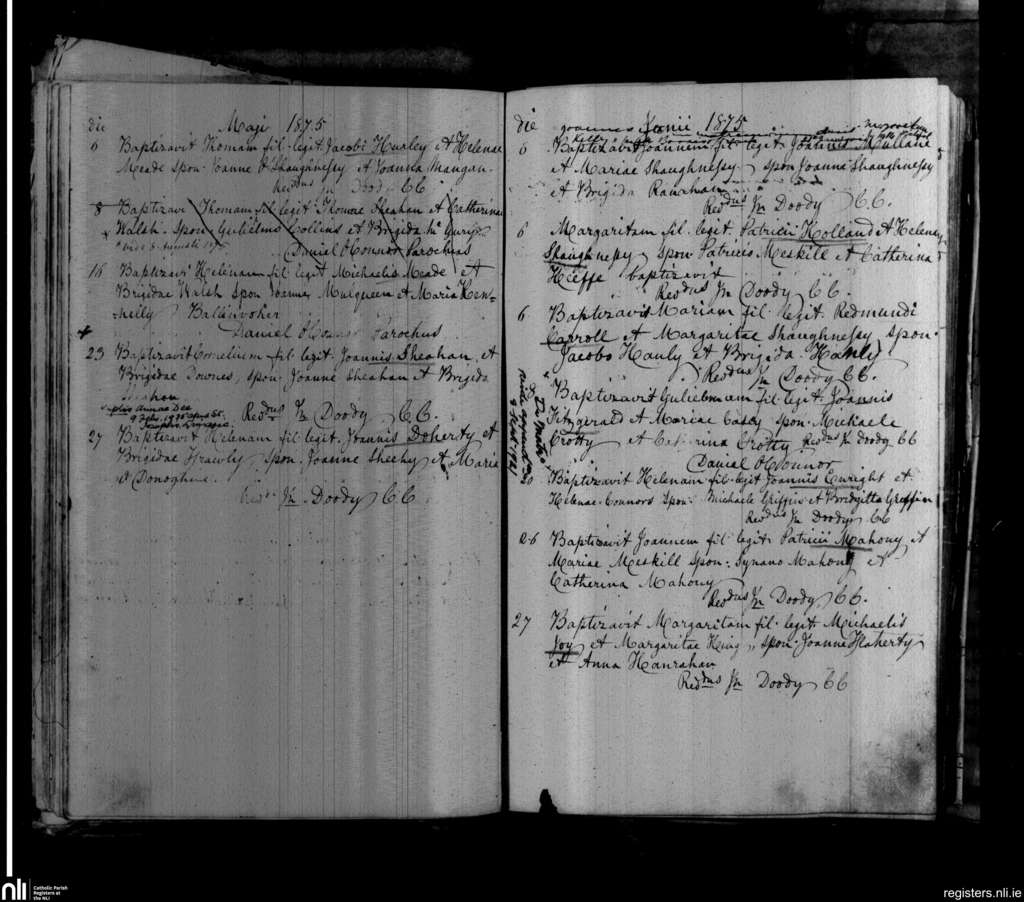 die Maji 1875
6 Baptizavit Thomam fil. legit. Jacobi Hurley et Helenae
Meade spon. Joanne O'Shaughnessy et Joanna Mangan.
Revdus Jn Doody CC.
8 Baptizavi Thomam fil. legit. Thomae Sheahan et Catherinae
Walsh. Spon. Gulielmo Collins et Brigida
vide 8 Augusti 1875
Daniel O'Connor Parochus
16 Baptizavi Helenam fil. legit. Michaelis Meade et
Brigidae Walsh spon. Joanne Mulqueen et Maria Hen-
nelly Ballinvoher
Daniel O'Connor Parochus
23 Baptizavit Cornelium fil. legit. Joannis Sheahan et
Brigidae Downes, spon. Joanne Sheahan et Brigida
Annae Dee
9 Feb.
Revdus Jn Doody CC.
27 Baptizavit Helenam fil. legit. Joannis Doherty et
Brigidae Frawly spon. Joanne Sheehy et Maria
O'Donoghue.
Revdus Jn Doody CC
die Joannes Junii 1875
6 Baptizavit Joannem fil. legit. Joannis Mullane
et Mariae Shaughnessy spon. Joanne Shaughnessy
et Brigida Ranahan
Revdus Jn Doody CC.
6 Margaritam fil. legit. Patricii Holland et Helenae
Shaughnessy spon. Patricio Meskill et Catherina
Kieffe baptizavit
Revdus Jn Doody CC.
6 Baptizavit Mariam fil. legit. Redmundi
Carroll et Margaritae Shaughnessy spon.
Jacobo Hanly et Brigida Hanly
Revdus Jn Doody CC.
Baptizavit Gulielmum fil. legit. Joannis
Fitzgerald et Mariae Casey spon. Michaele
Crotty et Catherina Crotty. Revdus Jn Doody CC
Daniel O'Connor
20 Baptizavit Helenam fil. legit. Joannis Enright et
Helenae Connors spon. Michaele Griffin et Bridgitta Griffin
Revdus Jn Doody CC
26 Baptizavit Joannem fil. legit. Patricii Mahony et
Mariae Meskill spon. Synano Mahony et
Catherina Mahony
Revdus Jn Doody, CC.
27 Baptizavit Margaritam fil. legit. Michaelis
Joy et Margaritae King, spon. Joanne Flaherty
et Anna Hanrahan
Revdus Jn Doody CC
nli Catholic Parish
Registers at
the NLI
registers.nli.ie